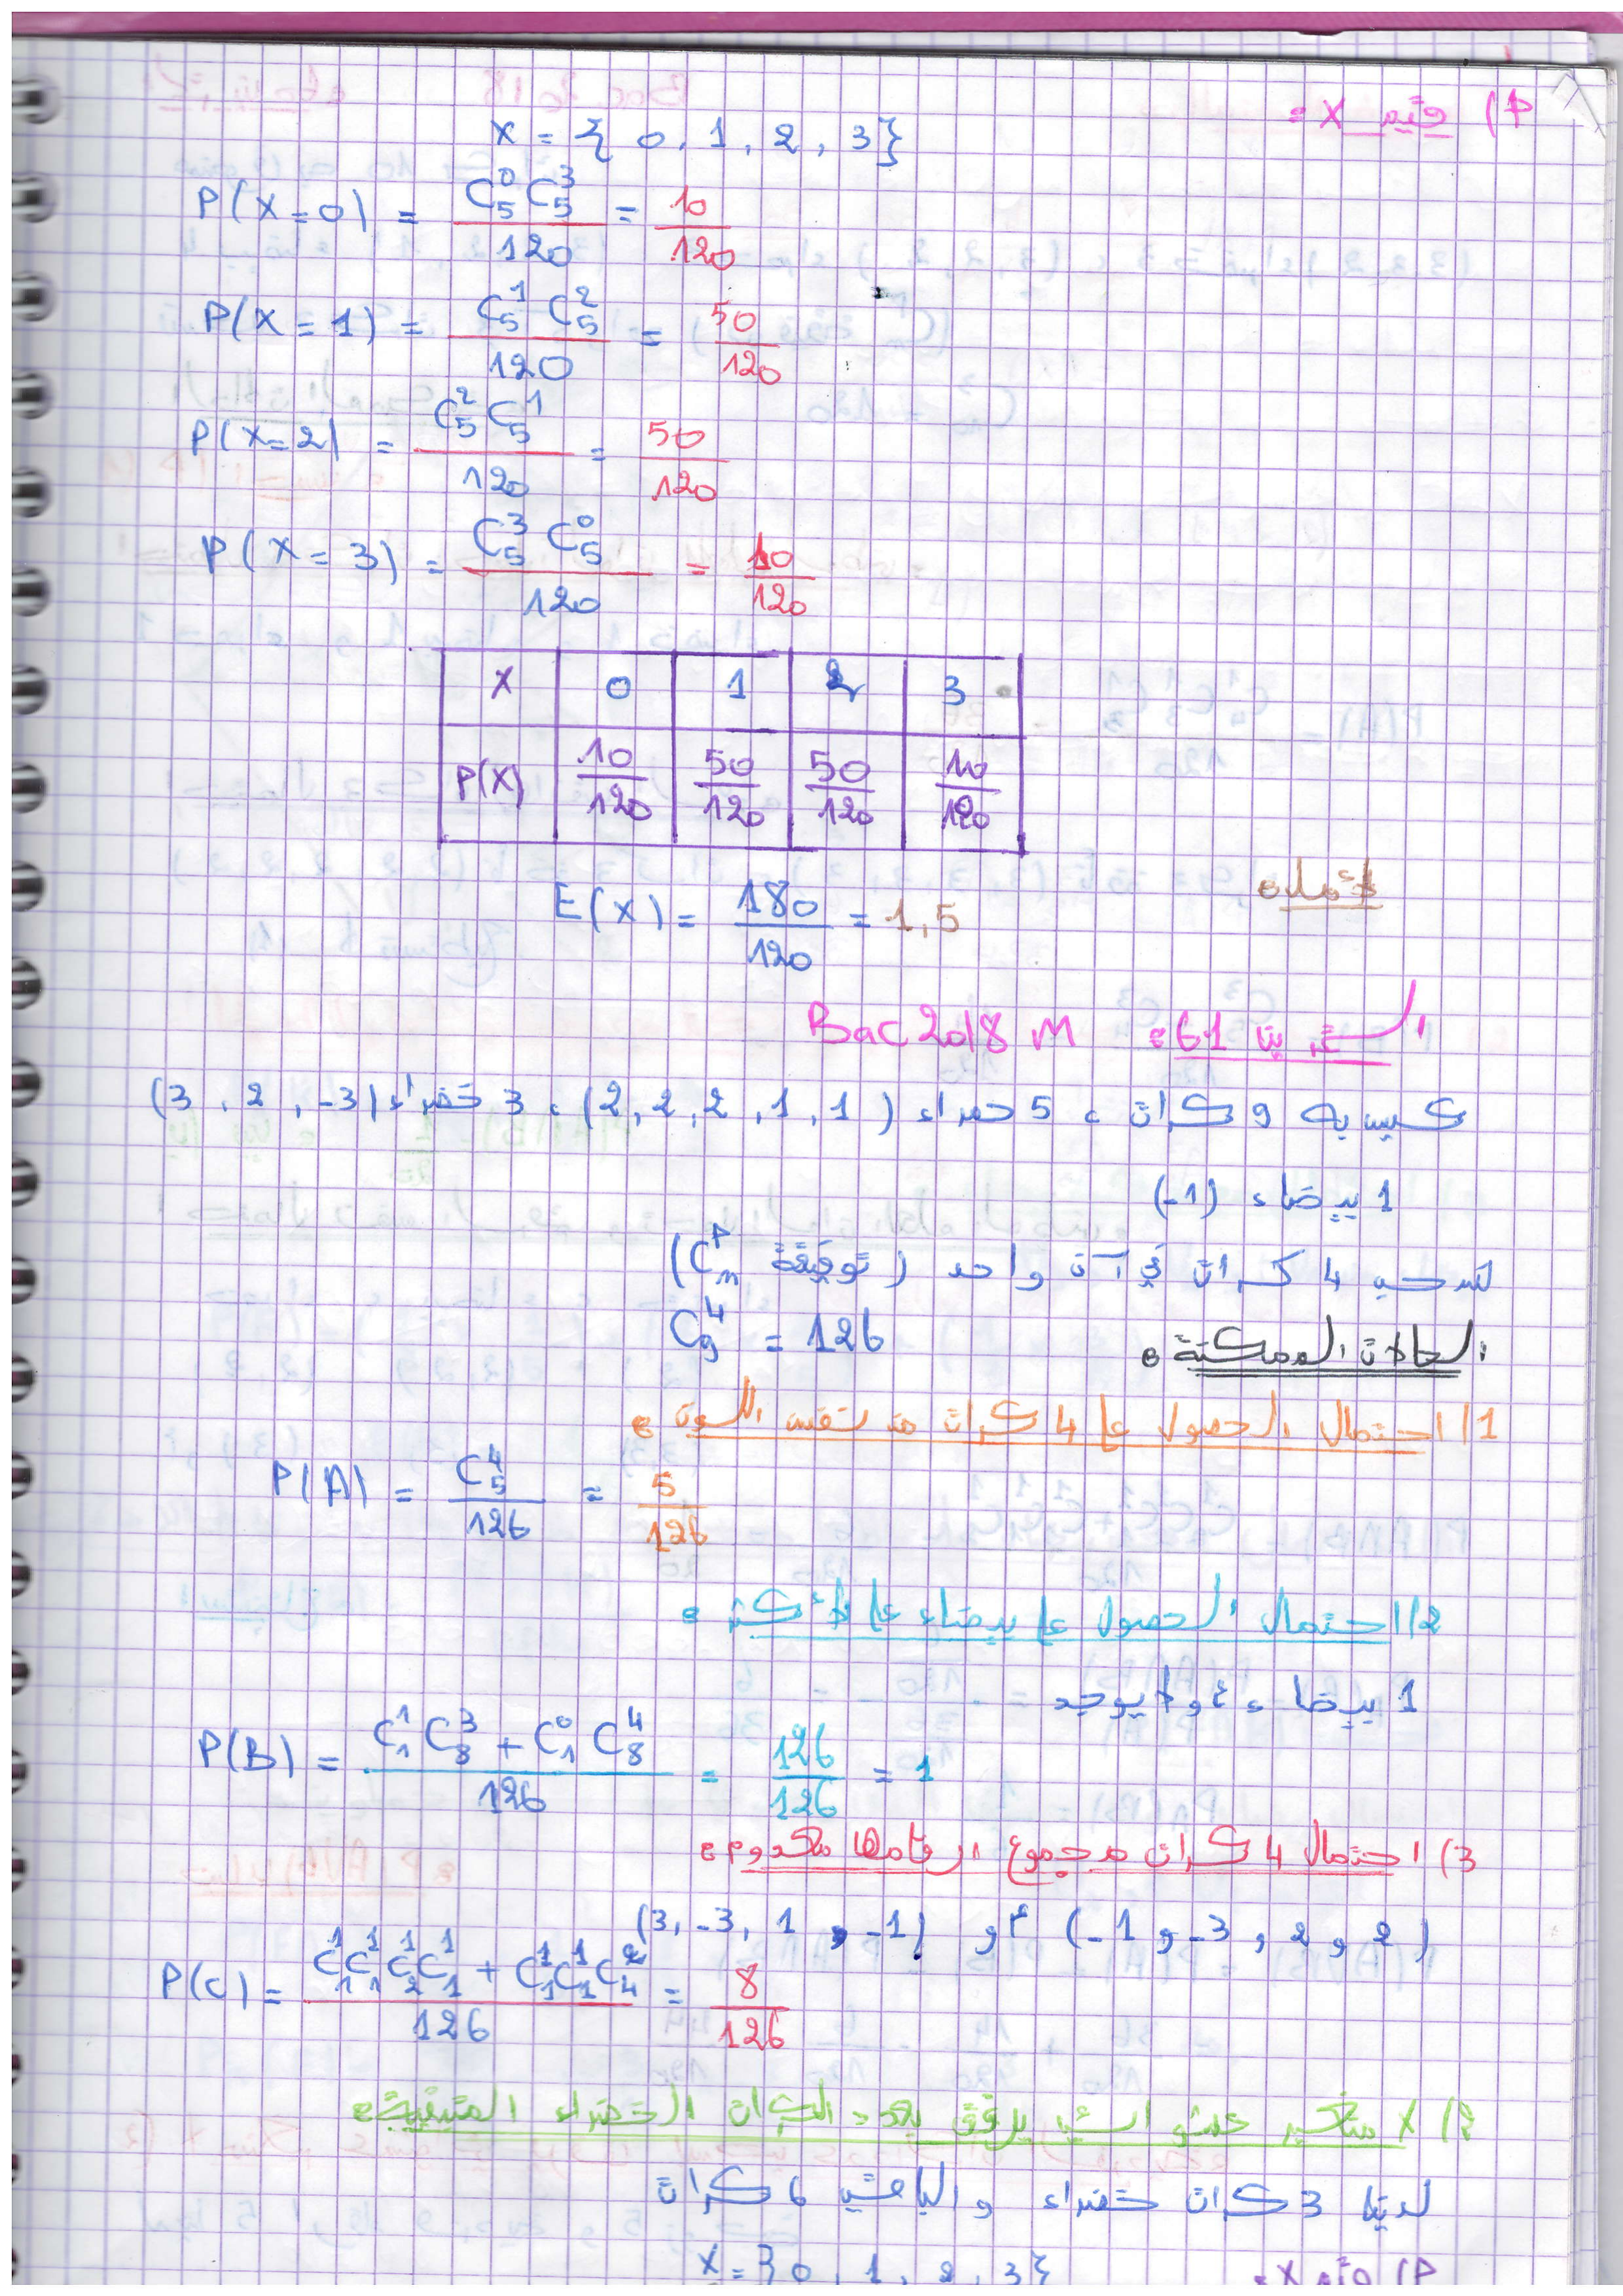 1) قيم X :
X = { 0 , 1 , 2 , 3 }
P(X=0) = C₅⁰ C₅³ / 120 = 10/120
P(X=1) = C₅¹ C₅² / 120 = 50/120
P(X=2) = C₅² C₅¹ / 120 = 50/120
P(X=3) = C₅³ C₅⁰ / 120 = 10/120
X 0 1 2 3
P(X) 10/120 50/120 50/120 10/120
E(X) = 180/120 = 1,5
Bac 2018 M : 61
كيس به 9 كرات ، 5 حمراء (1 ,1 ,2 ,2 ,2) ، 3 خضراء (3 , 2 , -3)
1 بيضاء (-1)
نسحب 4 كرات في آن واحد (توفيقة Cₙᴾ)
الحالات الممكنة : C₉⁴ = 126
1/ احتمال الحصول على 4 كرات من نفس اللون :
P(A) = C₅⁴ / 126 = 5/126
2/ احتمال الحصول على بيضاء على الأكثر :
1 بيضاء أو لا يوجد
P(B) = C₁¹ C₈³ + C₁⁰ C₈⁴ / 126 = 126/126 = 1
3) احتمال 4 كرات مجموع أرقامها معدوم :
(-1 , -3 , 2 , 2) أو (3, -3, 1 , -1)
P(C) = C₁¹C₁¹C₂¹C₁¹ + C₁¹C₁¹C₄² / 126 = 8/126
2) X متغير عشوائي يرفق بعدد الكرات الخضراء المتبقية :
لدينا 3 كرات خضراء والباقي 6 كرات
1) قيم X :
X = { 0 , 1 , 2 , 3 }